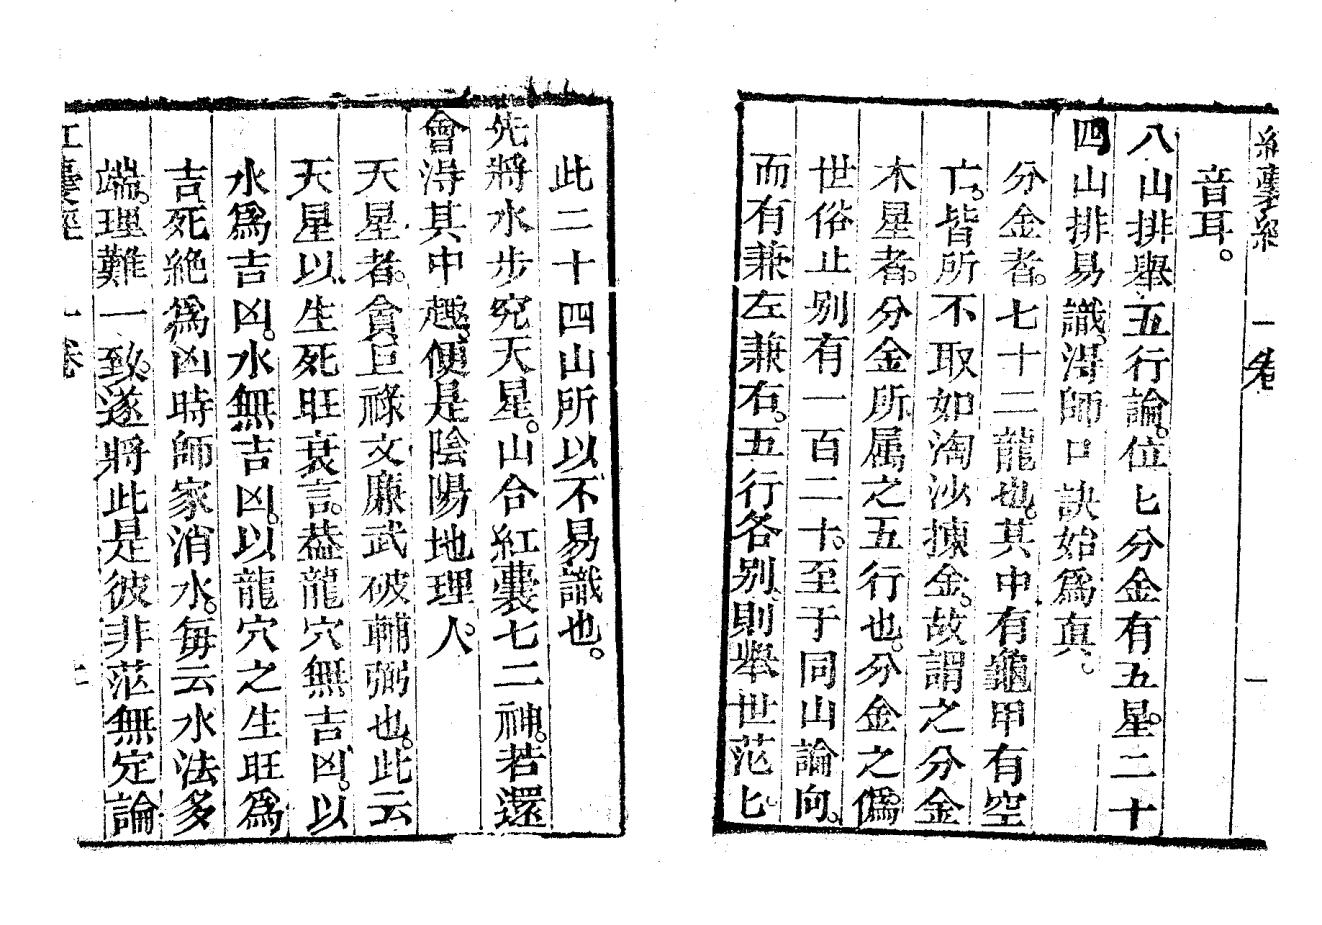 紅囊經 一卷 一
音耳。
八山排舉五行論。位七分金有五星。二十
四山排易識。淂師口訣始爲真。
分金者。七十二龍也。其中有龜甲有空
亡。皆所不取如淘沙揀金。故謂之分金
木星者。分金所属之五行也。分金之僞。
世俗止别有一百二十。至于同山論向。
而有兼左兼右。五行各别。則舉世茫七。
此二十四山所以不易識也。
先將水步究天星。山合紅囊七二神。若還
會淂其中趣。便是陰陽地理人。
天星者。貪巨祿文廉武破輔弼也。此云
天星以生死旺衰言。葢龍穴無吉凶。以
水爲吉凶。水無吉凶。以龍穴之生旺爲
吉死絶爲凶時師家消水。每云水法多
端。理難一致。遂將此是彼非茫無定論
紅囊經 一卷 二